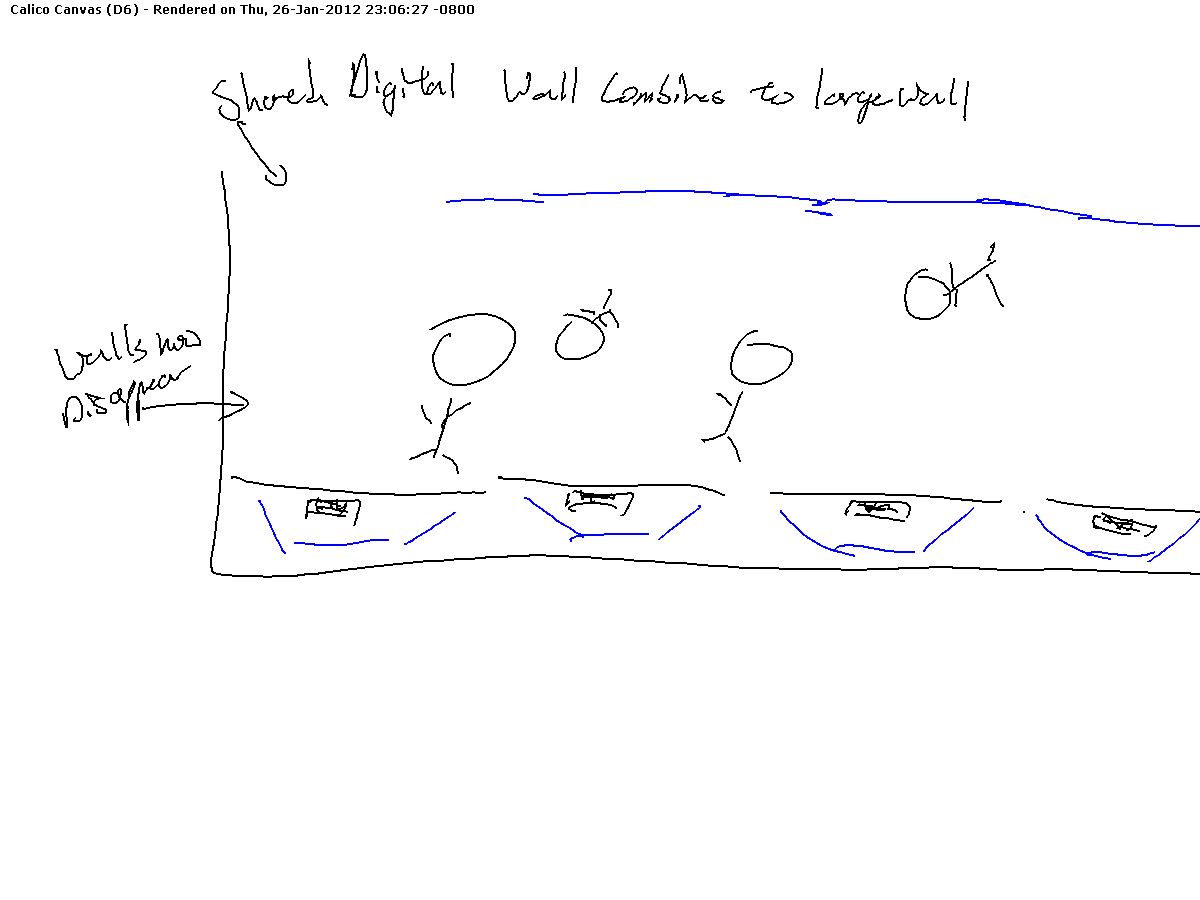 Calico Canvas (D6) - Rendered on Thu, 26-Jan-2012 23:06:27 -0800
Shared Digital Wall Combines to large wall
Walls now
Disappear